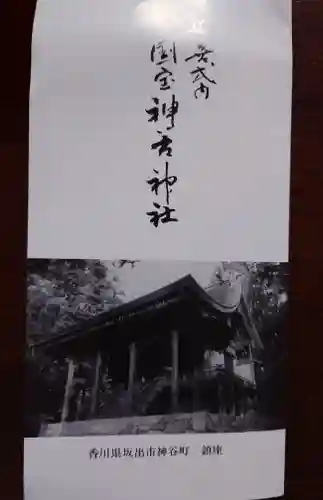 延式内
国宝神谷神社
香川県坂出市神谷町　鎮座